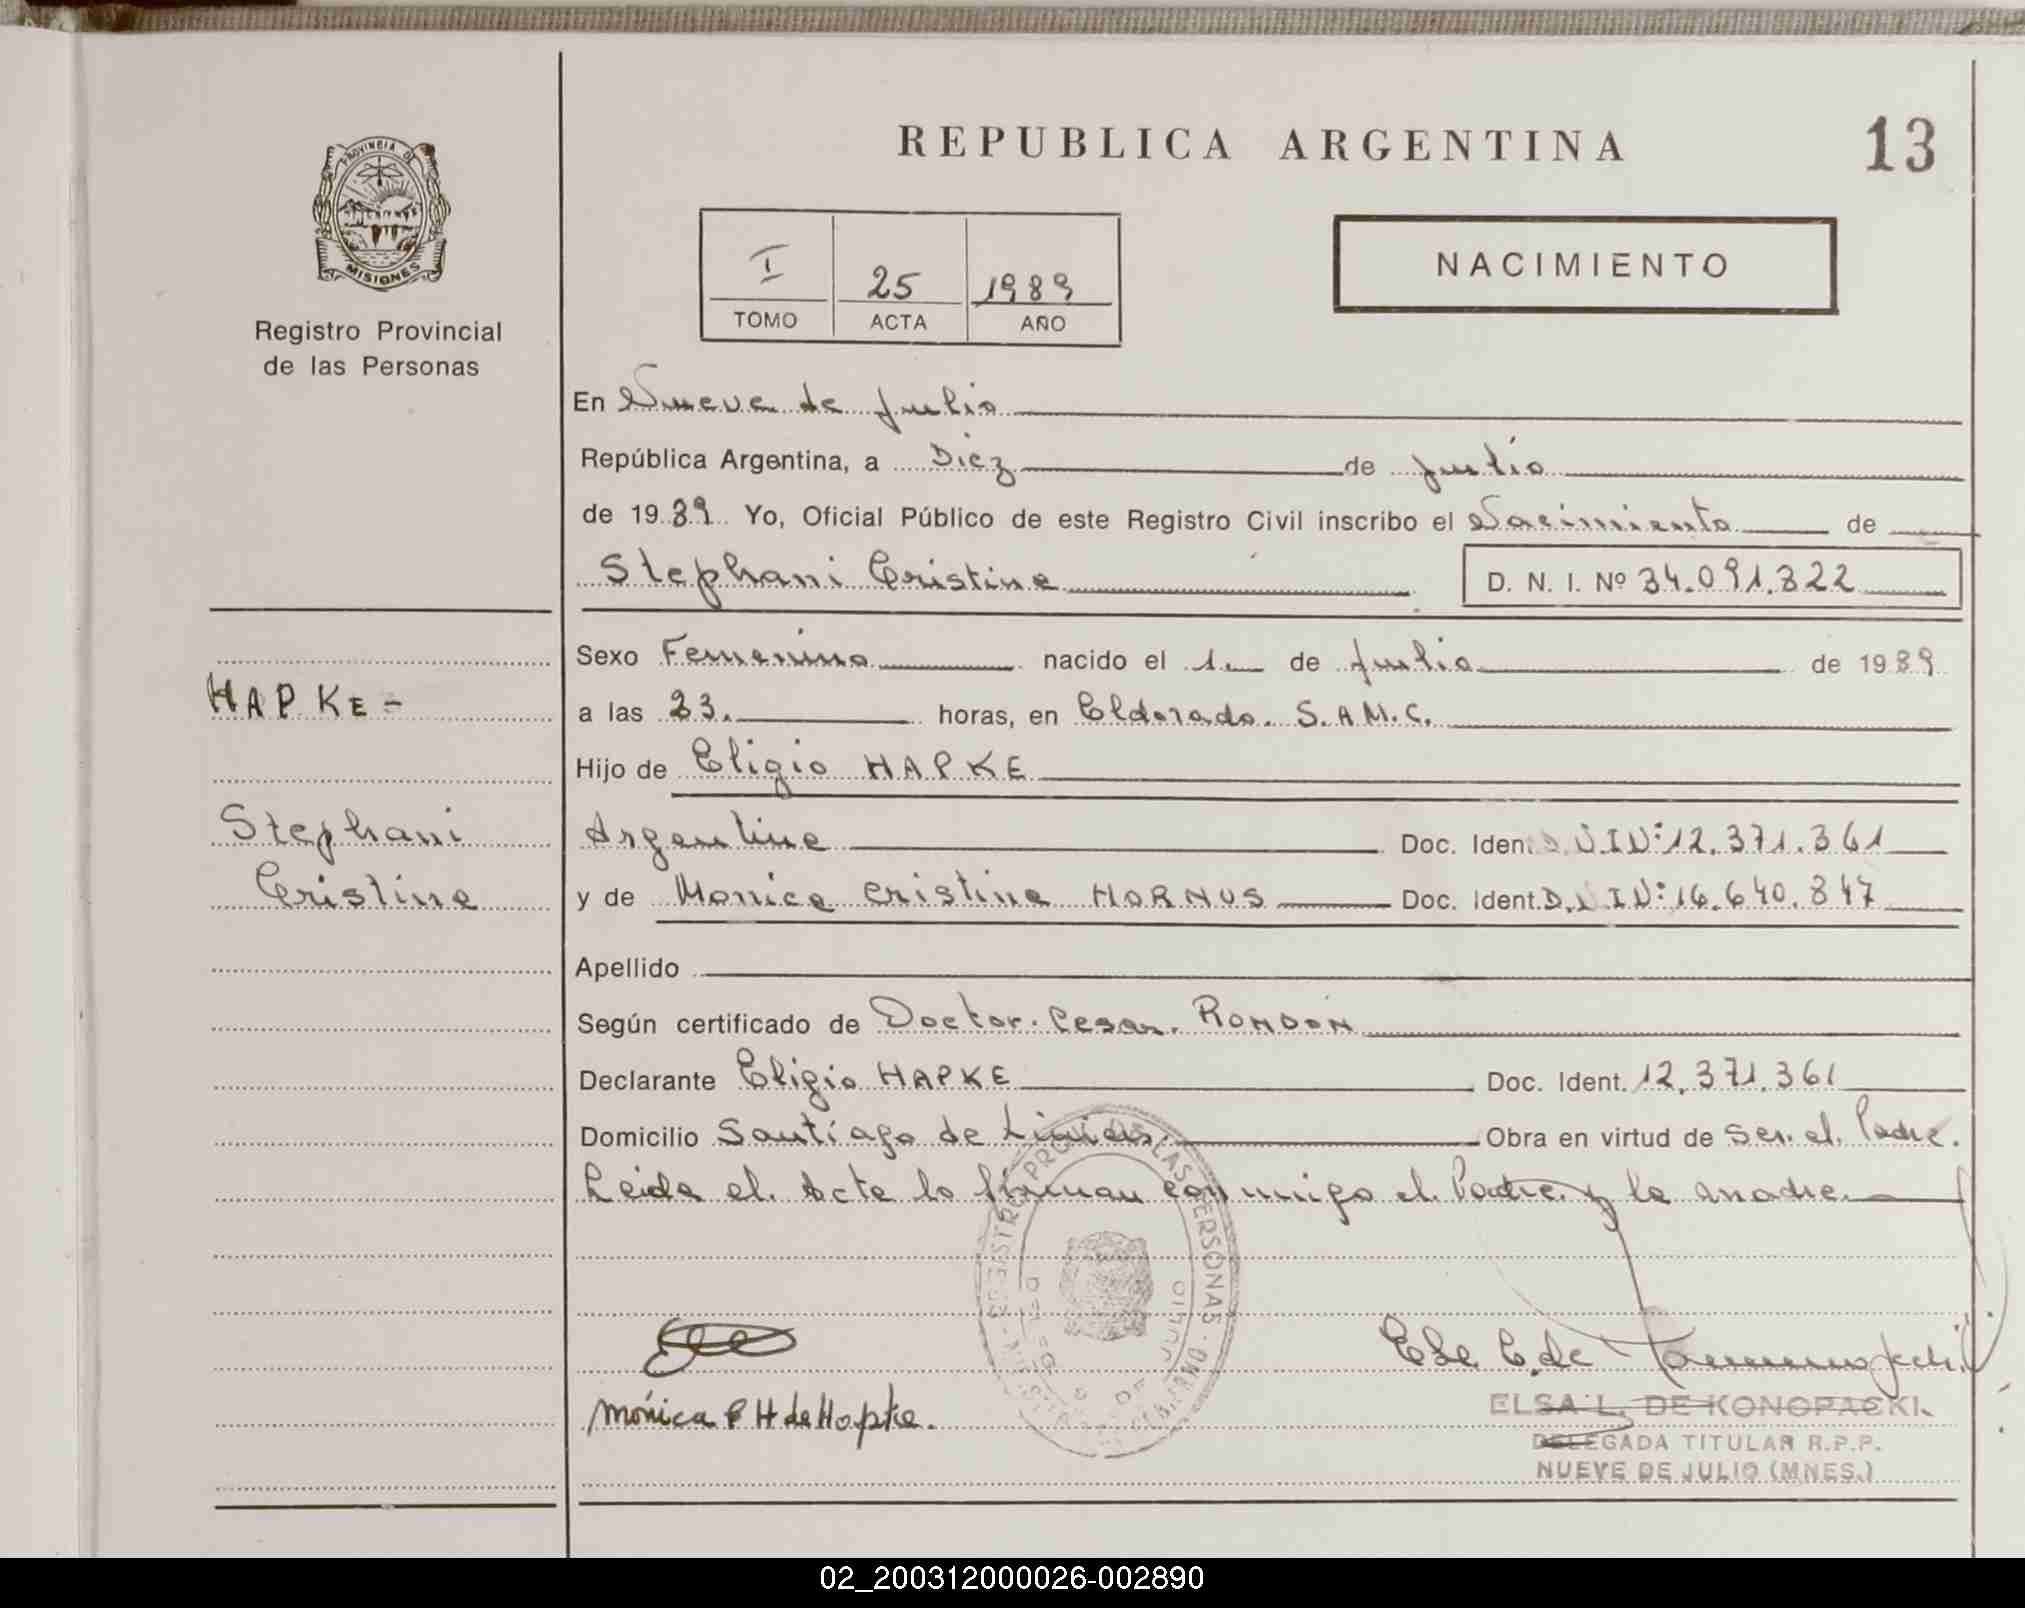 REPUBLICA ARGENTINA
13
PROVINCIA DE
MISIONES
Registro Provincial
de las Personas
I
25
1989
TOMO
ACTA
AÑO
NACIMIENTO
En Nueve de Julio
República Argentina, a Diez de Julio
de 1989 Yo, Oficial Público de este Registro Civil inscribo el Nacimiento de
Stephani Cristina
D. N. I. Nº 34.091.322
Sexo Femenino nacido el 1 de Julio de 1989
HAPKE-
a las 23. horas, en Eldorado. S.A.M.C.
Hijo de Eligio HAPKE
Stephani
Argentina Doc. Iden. D.N.I.Nº: 12.371.361
Cristina
y de Monica Cristina HORNUS Doc. Ident. D.N.I.Nº: 16.640.847
Apellido
Según certificado de Doctor. Cesar. RONDON
Declarante Eligio HAPKE Doc. Ident. 12.371.361
Domicilio Santiago de Liniers. Obra en virtud de Ser. el. Padre.
Leida el. Acta lo firman conmigo el. Padre. y la madre.
REGISTRO PROV. DE LAS PERSONAS
Mónica C H de Hapke.
ELSA L. DE KONOPACKI.
DELEGADA TITULAR R.P.P.
NUEVE DE JULIO (MNES.)
02_200312000026-002890